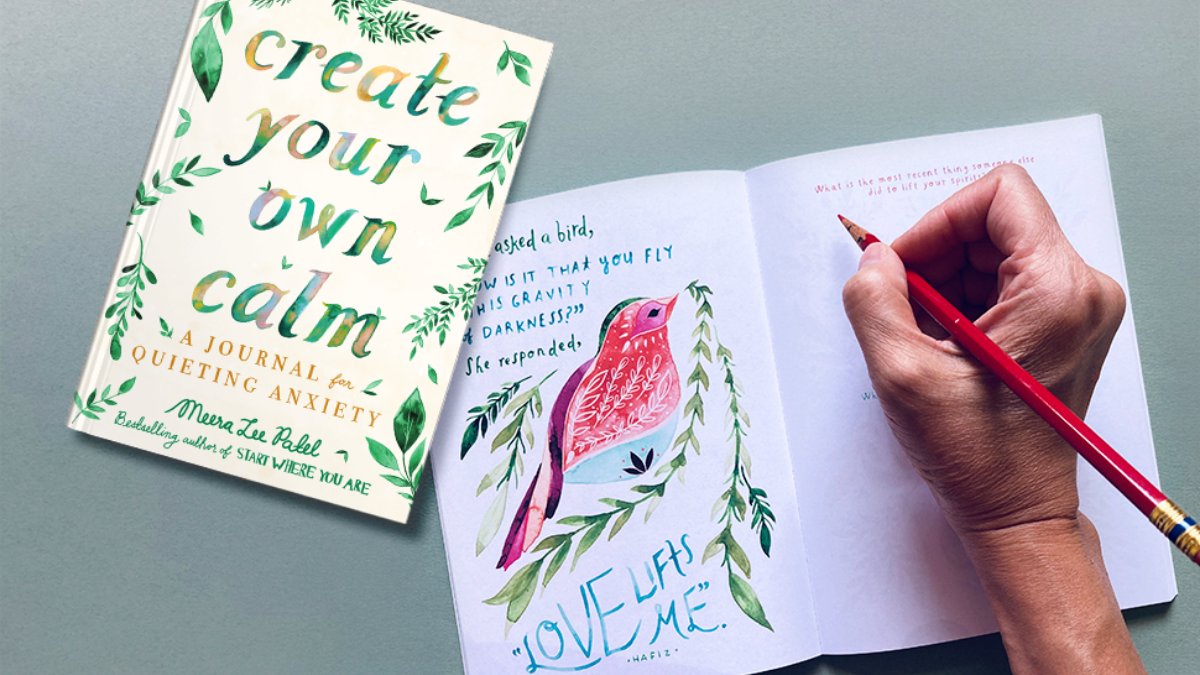 create
your
own
calm
A JOURNAL for
QUIETING ANXIETY
Meera Lee Patel
Bestselling author of START WHERE YOU ARE
asked a bird,
OW IS IT THAT YOU FLY
HIS GRAVITY
OF DARKNESS?"
She responded,
"LOVE LIFTS
ME."
·HAFIZ·
What is the most recent thing someone else
did to lift your spirits?